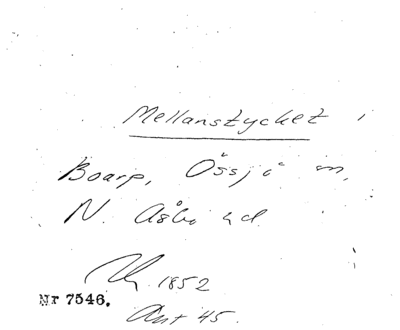 Mellanstycket i
Boarp, Össjö sn,
N. Åsbo hd.
1852
Nr 7546.
Ant 45.